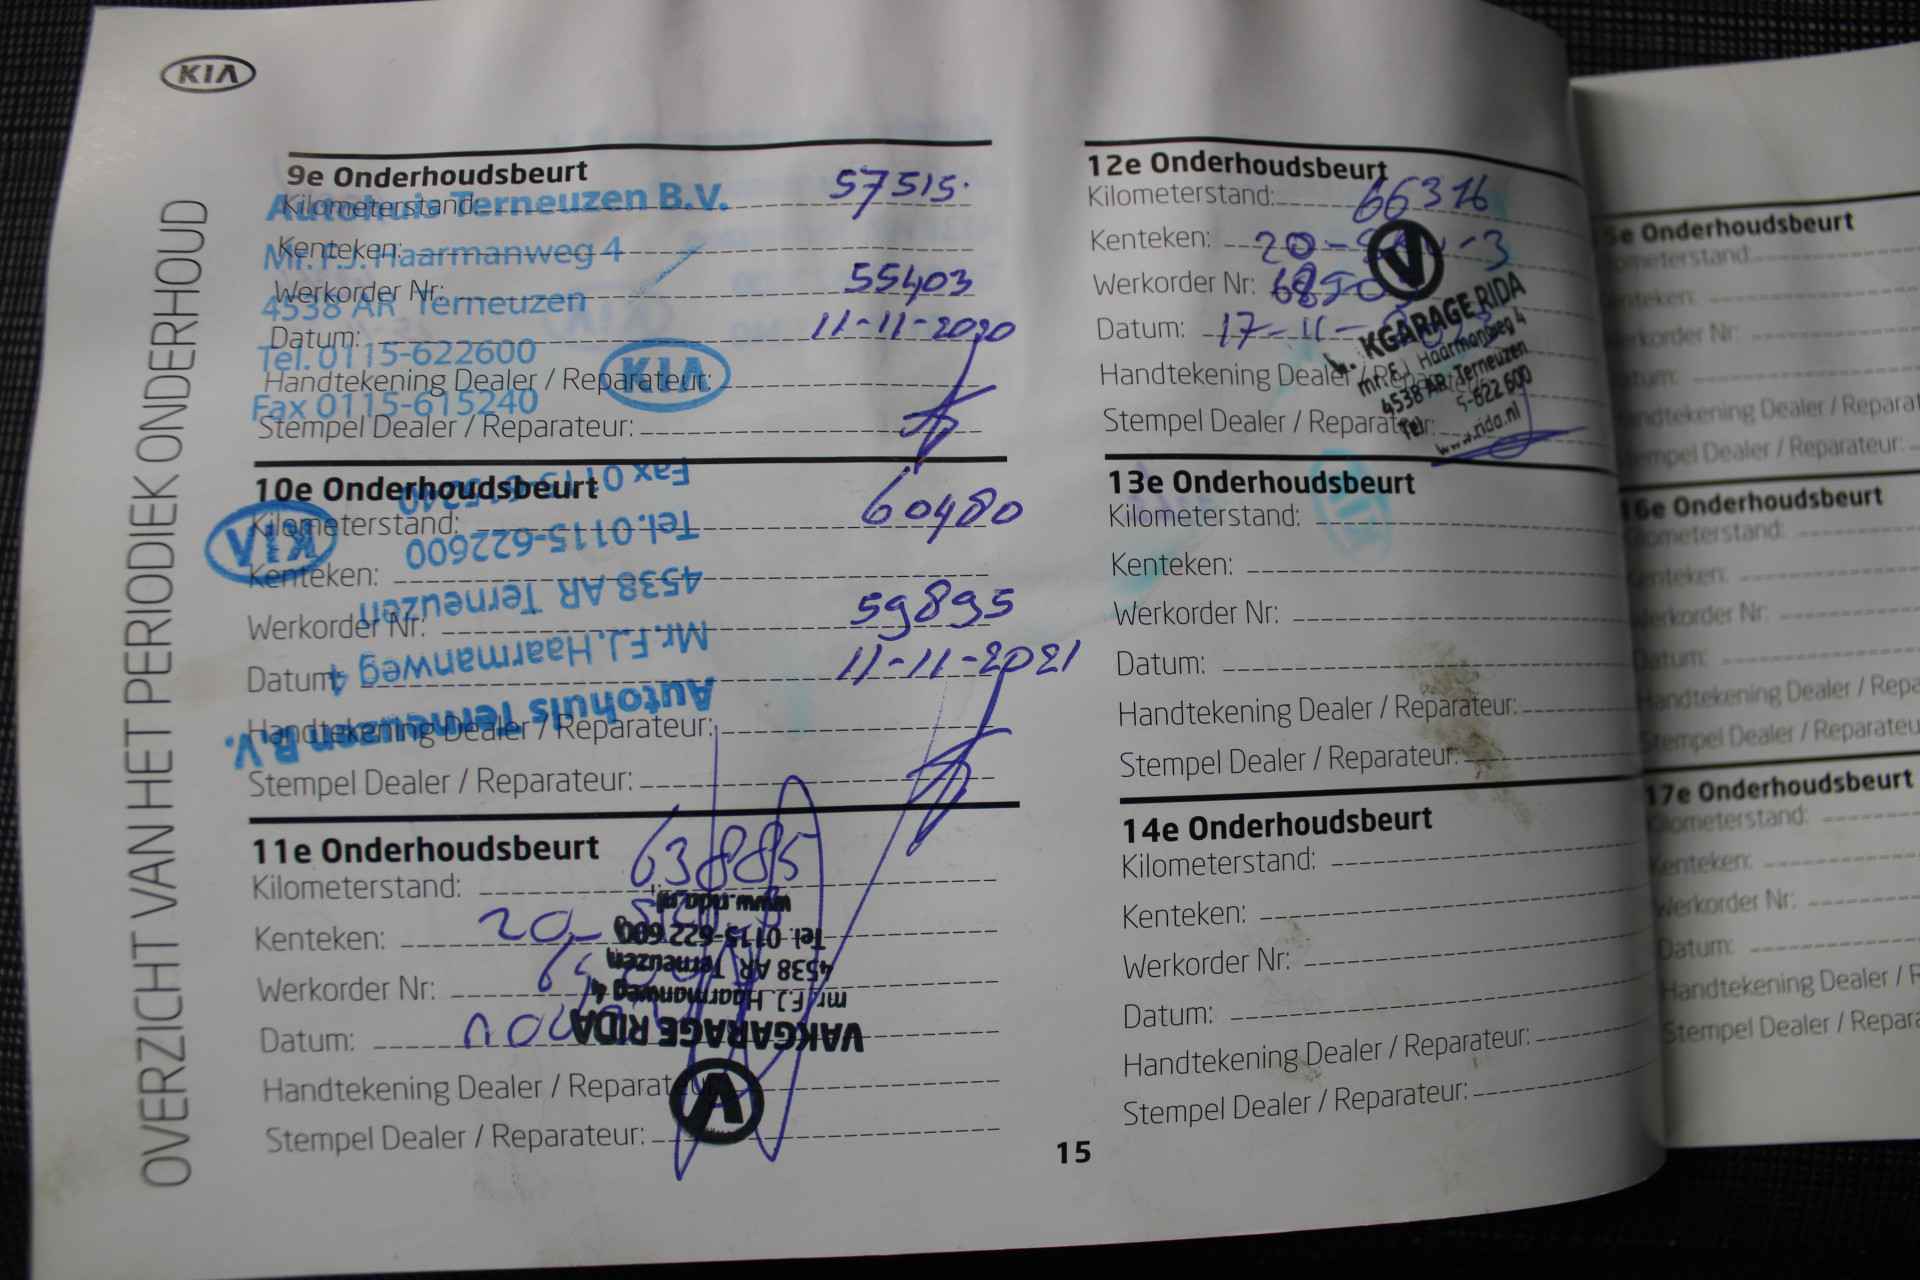 KIA
OVERZICHT VAN HET PERIODIEK ONDERHOUD
9e Onderhoudsbeurt
Kilometerstand: 57515.
Kenteken:
Werkorder Nr: 55403
Datum: 11-11-2020
Handtekening Dealer / Reparateur:
Stempel Dealer / Reparateur:
Autohuis Terneuzen B.V.
Mr. F.J. Haarmanweg 4
4538 AR Terneuzen
Tel. 0115-622600
Fax 0115-615240
KIA
10e Onderhoudsbeurt
Kilometerstand: 60480
Kenteken:
Werkorder Nr: 59895
Datum: 11-11-2021
Handtekening Dealer / Reparateur:
Stempel Dealer / Reparateur:
Autohuis Terneuzen B.V.
Mr. F.J. Haarmanweg 4
4538 AR Terneuzen
Tel. 0115-622600
Fax 0115-615240
KIA
11e Onderhoudsbeurt
Kilometerstand: 63885
Kenteken: 20-
Werkorder Nr:
Datum:
Handtekening Dealer / Reparateur:
Stempel Dealer / Reparateur:
VAKGARAGE RIDA
mr. F.J. Haarmanweg 4
4538 AR Terneuzen
Tel. 0115-622 600
www.rida.nl
12e Onderhoudsbeurt
Kilometerstand: 66376
Kenteken: 20- -3
Werkorder Nr:
Datum: 17-11-
Handtekening Dealer /
Stempel Dealer / Reparateur:
KGARAGE RIDA
mr. F.J. Haarmanweg 4
4538 AR Terneuzen
Tel. 5-622 600
www.rida.nl
13e Onderhoudsbeurt
Kilometerstand:
Kenteken:
Werkorder Nr:
Datum:
Handtekening Dealer / Reparateur:
Stempel Dealer / Reparateur:
14e Onderhoudsbeurt
Kilometerstand:
Kenteken:
Werkorder Nr:
Datum:
Handtekening Dealer / Reparateur:
Stempel Dealer / Reparateur:
15
5e Onderhoudsbeurt
ometerstand:
enteken:
erkorder Nr:
atum:
andtekening Dealer / Reparat
tempel Dealer / Reparateur:
16e Onderhoudsbeurt
ilometerstand:
enteken:
Werkorder Nr:
Datum:
Handtekening Dealer / Repa
Stempel Dealer / Reparateu
17e Onderhoudsbeurt
Kilometerstand:
Kenteken:
Werkorder Nr:
Datum:
Handtekening Dealer / R
Stempel Dealer / Repara